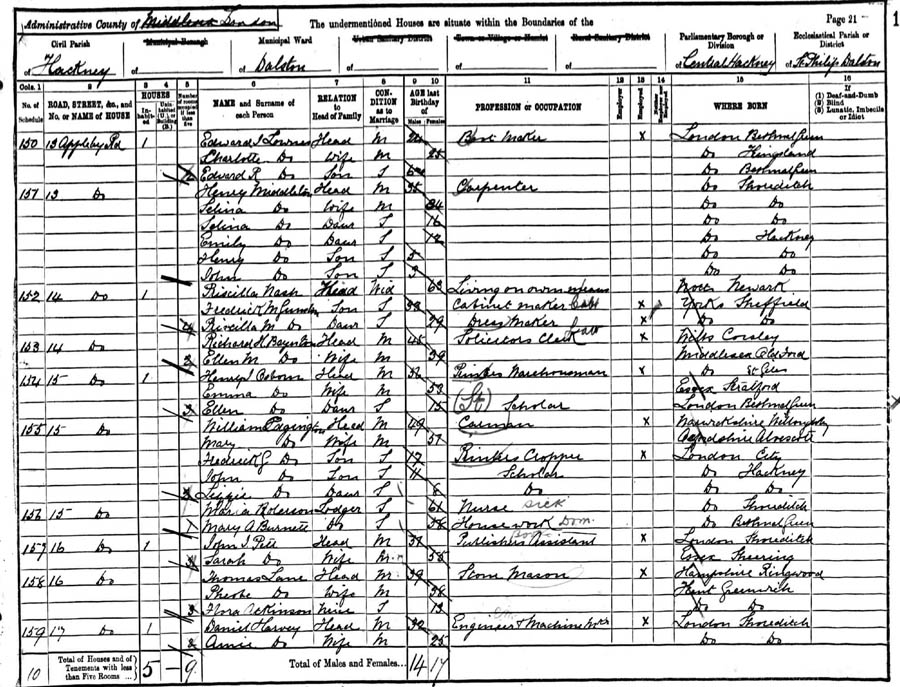 Administrative County of Middlesex London The undermentioned Houses are situate within the Boundaries of the Page 21 1
Civil Parish Municipal Borough Municipal Ward Urban Sanitary District Town or Village or Hamlet Rural Sanitary District Parliamentary Borough or Division Ecclesiastical Parish or District
of Hackney of of Dalston of of of of Central Hackney of St Philip Dalston
Cols. 1 2 3 4 5 6 7 8 9 10 11 12 13 14 15 16
No. of Schedule ROAD, STREET, &c., and No. or NAME of HOUSE HOUSES Inhabited Uninhabited (U.), or Building (B.) Number of rooms occupied if less than five NAME and Surname of each Person RELATION to Head of Family CONDITION as to Marriage AGE last Birthday of Males Females PROFESSION or OCCUPATION Employer Employed Neither Employer nor Employed WHERE BORN If (1) Deaf-and-Dumb (2) Blind (3) Lunatic, Imbecile or Idiot
150 13 Appleby Rd 1 Edward J Lownes Head M Boot Maker X London Bethnal Green
Charlotte Do Wife M 25 Do Kingsland
2 Edward R Do Son S Do Bethnal Green
151 13 Do Henry Middleton Head M 35 Carpenter Do Shoreditch
Selina Do Wife M 34 Do Do
Selina Do Daur S 16 Do Do
Emily Do Daur S 12 Do Hackney
Henry Do Son S 5 Do Do
John Do Son S 3 Do Do
152 14 Do 1 Priscilla Nash Head Wid 63 Living on own means Notts Newark
Frederick M Son S 38 Cabinet maker X Yorks Sheffield
4 Priscilla M Do Daur S 29 Dress Maker X Do Do
153 14 Do Richard H Boynton Head M 45 Solicitors Clerk X Wilts Corsley
2 Ellen M Do Wife M 39 Middlesex Old Ford
154 15 Do 1 Henry J Osborn Head M 56 Printers Warehouseman X Do St Giles
Emma Do Wife M 53 Essex Stratford
3 Ellen Do Daur S 15 (St) Scholar London Bethnal Green
155 15 Do William Edgington Head M 49 Carman X Warwickshire Willoughby
Mary Do Wife M 51 Oxfordshire Alvescott
Frederick G Do Son S 17 Printers Cropper X London City
John Do Son S 11 Scholar Do Hackney
3 Lizzie Do Daur S 8 Do Do Do
156 15 Do Maria Roberson Lodger S 61 Nurse sick Do Shoreditch
1 Mary A Burnett Do S 38 Housework Dom. Do Bethnal Green
157 16 Do 1 John J Pett Head M 57 Publishers Assistant X London Shoreditch
4 Sarah Do Wife M 58 Essex Sheering
158 16 Do Thomas Lane Head M 39 Stone Mason X Hampshire Ringwood
Phebe Do Wife M 38 Kent Greenwich
3 Flora Atkinson Niece S 13 Do Do
159 17 Do 1 Daniel Harvey Head M 32 Engineer & Machine X London Shoreditch
2 Annie Do Wife M 25 Do Do
10 Total of Houses and of Tenements with less than Five Rooms ... 5 – 9 Total of Males and Females... 14 17